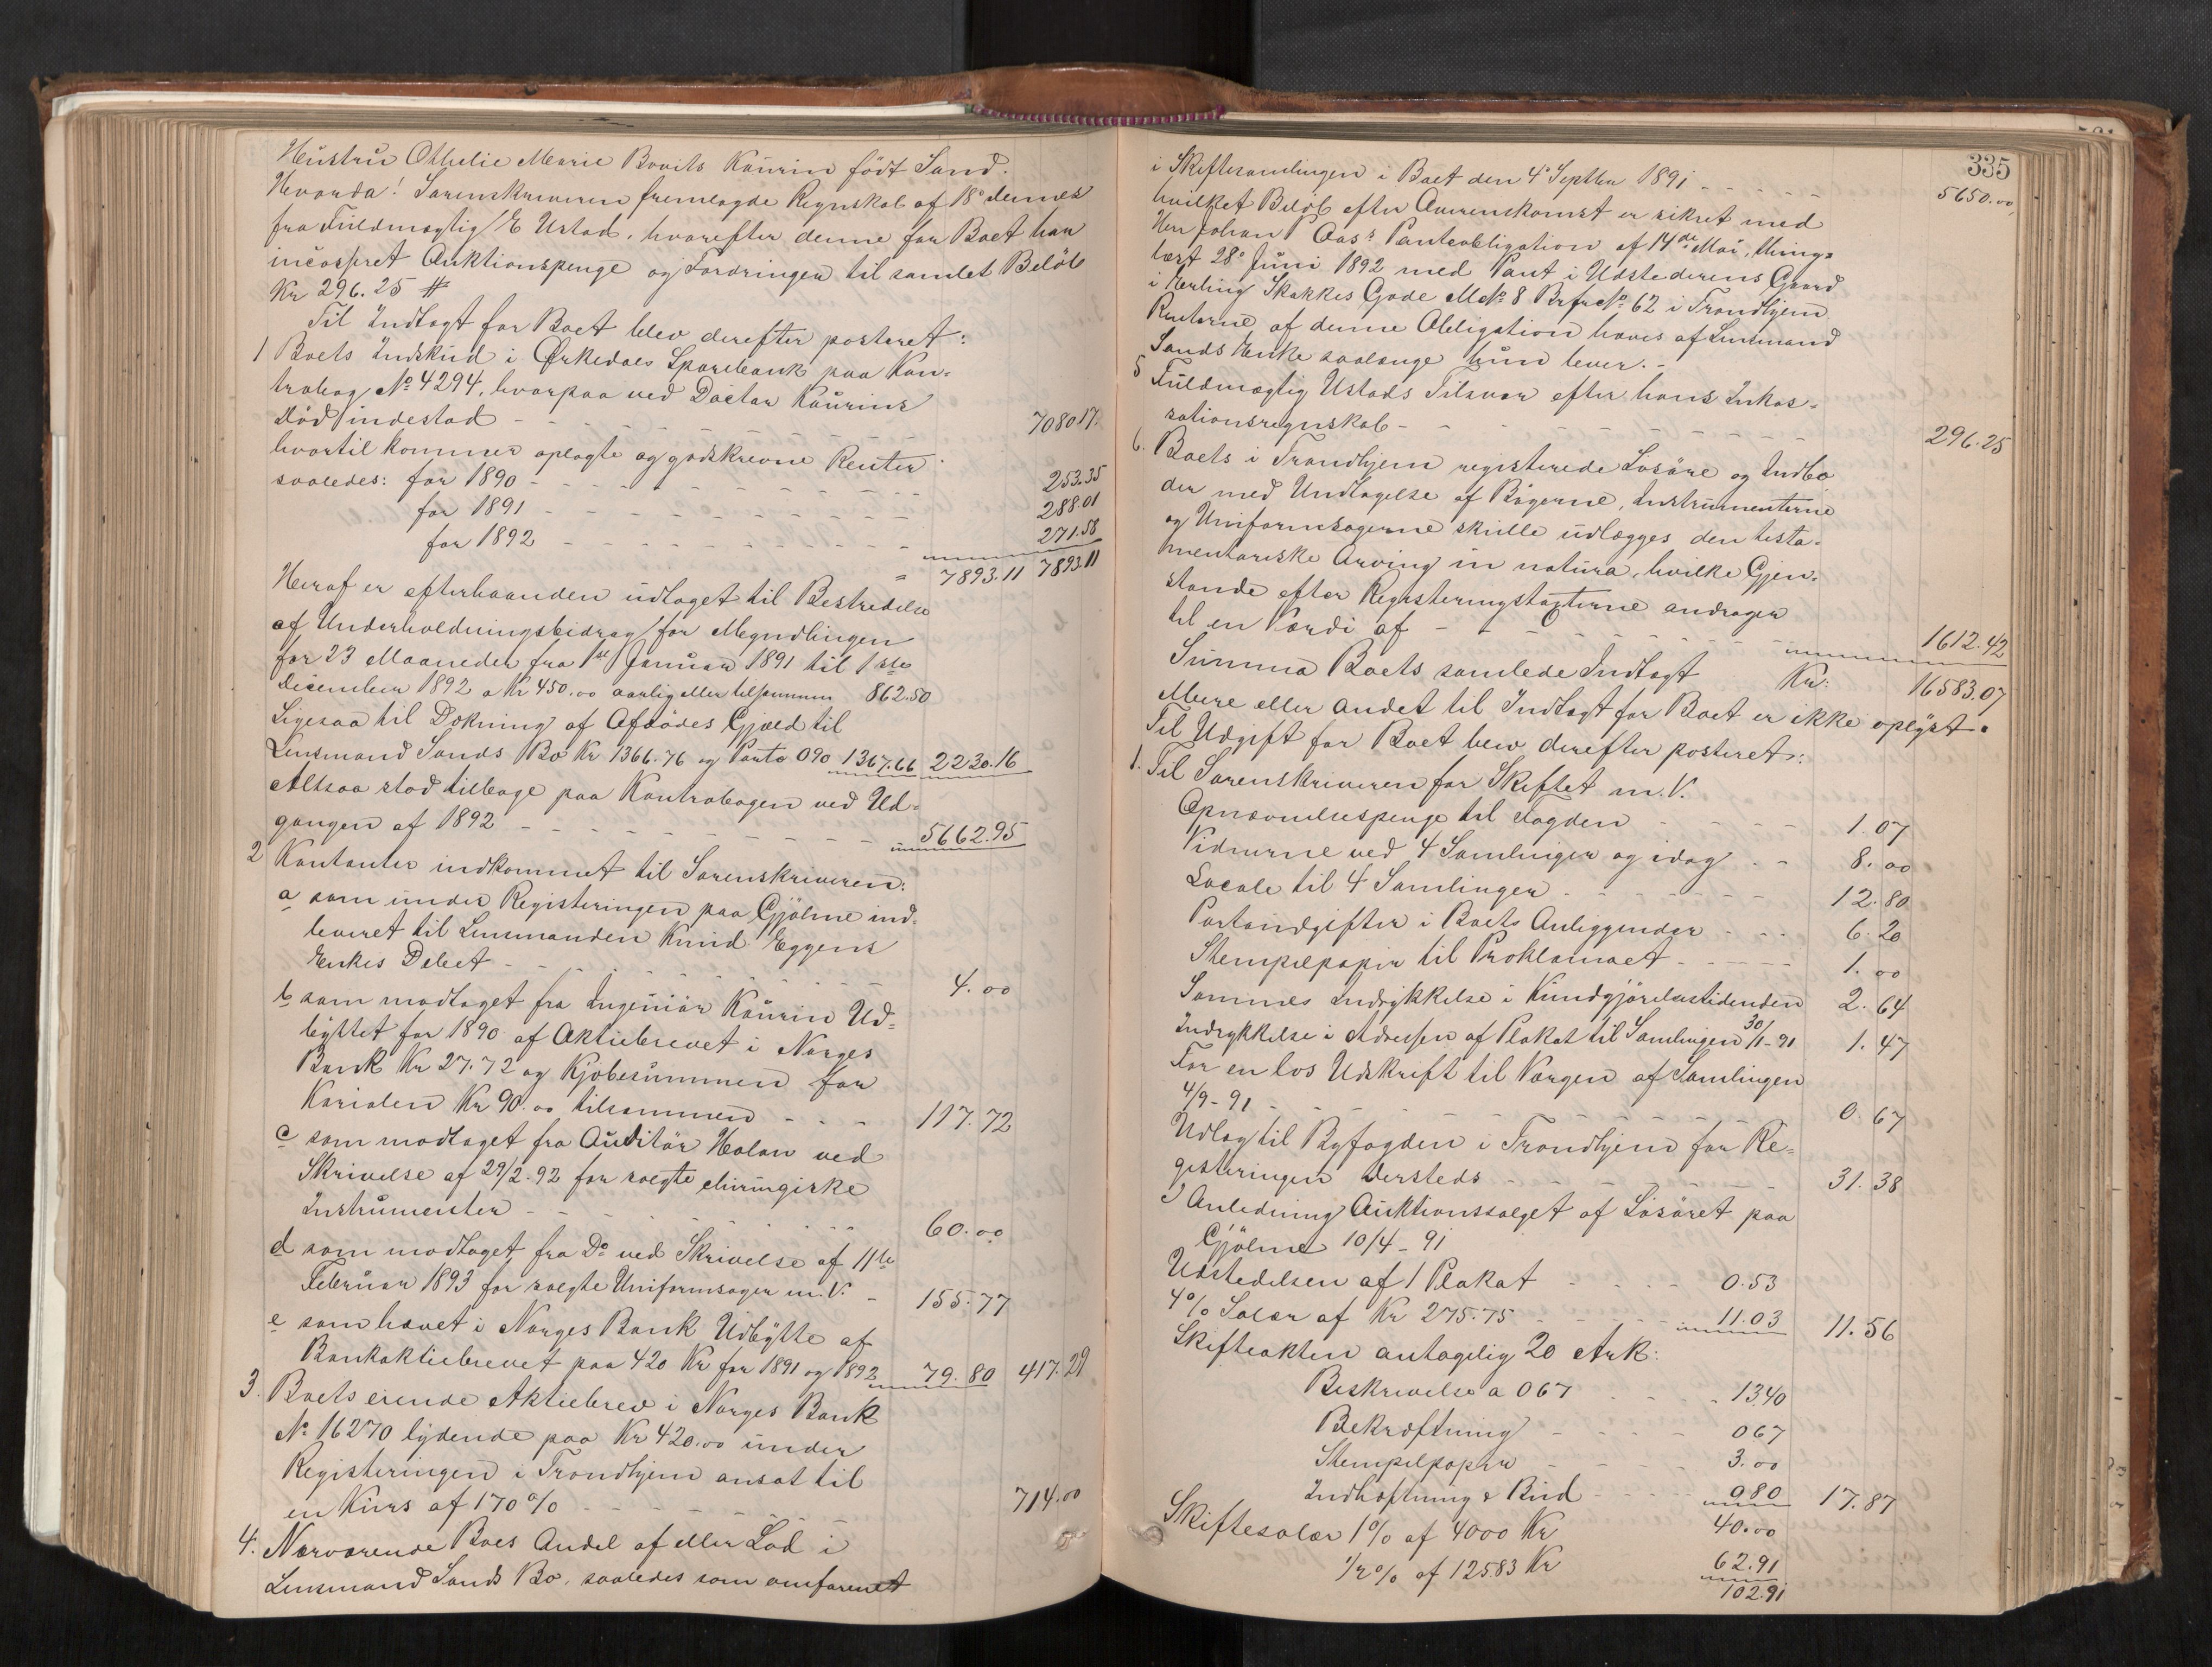 Hustru Othelie Marie Bovits Kaurin født Sand.
Hvorda! Sorenskriveren fremlagde Regnskab af 18de dennes
fra Fuldmægtig E Ustad, hvorefter denne for Boet har
incasseret Auktionspenge og Fordringer til samlet Beløb
Kr 296.25 #
Til Indtægt for Boet blev derefter posteret:
1 Boets Indskud i Ørkedals Sparebank paa Kon-
trabog No 4294, hvorpaa ved Doctor Kaurins
Død indestod - - - 7080 17
hvortil kommer oplagte og godskrevne Renter
saaledes: for 1890 - - - 253.35
for 1891 - - - 288.01
for 1892 - - - 271.58
= 7893.11 7893.11
Heraf er efterhaanden udtaget til Bestridelse
af Underholdningsbidrag for Myndlingen
for 23 Maaneder fra 1ste Januar 1891 til 1ste
December 1892 a Kr 450.00 aarlig eller tilsammen 862.50
Ligesaa til Dækning af Afdødes Gjæld til
Lensmand Sands Bo Kr 1366.76 og Porto 090 1367.66 2230.16
Altsaa stod tilbage paa Kontrabogen ved Ud-
gangen af 1892 - - - 5662.95
2 Kontanter indkommet til Sorenskriveren:
a som under Registeringen paa Gjølme ind-
leveret til Lensmanden Knud Eggens
Enkes Debet - - - 4.00
b som modtaget fra Ingeniør Kaurin Ud-
byttet for 1890 af Aktiebrevet i Norges
Bank Kr 27.72 og Kjøbesummen for
Kariolen Kr 90.00 tilsammen - - - 117.72
c som modtaget fra Auditør Holan ved
Skrivelse af 29/2-92 for solgte chirurgiske
Instrumenter - - - 60.00
d som modtaget fra Do ved Skrivelse af 11te
Februar 1893 for solgte Uniformsager m.V. - 155.77
e som hævet i Norges Bank Udbytte af
Bankaktiebrevet paa 420 Kr for 1891 og 1892 79.80 417.29
3. Boets eiende Aktiebrev i Norges Bank
No 16270 lydende paa Kr 420.00 under
Registeringen i Trondhjem ansat til
en Kurs af 170% - - - 714.00
4. Nærværende Boes Andel af eller Lod i
Lensmand Sands Bo, saaledes som omforenet
335
i Skiftesamlingen i Boet den 4de Septber 1891 - - - 5650.00
hvilket Beløb efter Overenskomst er sikret med
Herr Johan P Aas's Panteobligation af 14de Mai, thing-
læst 28de Juni 1892 med Pant i Udstederens Gaard
i Erling Skakkes Gade MNo 8 BrfrNo 62 i Trondhjem.
Renterne af denne Obligation hæves af Lensmand
Sands Enke saalænge hun lever. -
5 Fuldmægtig Ustads Tilsvar efter hans Inkas-
sationsregnskab - - - 296.25
6. Boets i Trondhjem registerede Løsøre og Indbo
der med Undtagelse af Bøgerne, Instrumenterne
og Uniformsagerne skulle udlægges den testa-
mentariske Arving in natura, hvilke Gjen-
stande efter Registeringstaxterne andrager
til en Værdi af - - - 1612.42
Summa Boets samlede Indtægt Kr: 16583.07
Mere eller andet til Indtægt for Boet er ikke oplyst.
Til Udgift for Boet blev derefter posteret:
1. Til Sorenskriveren for Skiftet m.V.
Opnævnelsespenge til Fogden - - - 1.07
Vidnerne ved 4 Samlinger og idag - - 8.00
Locale til 4 Samlinger - - - 12.80
Portoudgifter i Boets Anliggender - - - 6.20
Stempelpapir til Proklamaet - - - 1.00
Sammes Indrykkelse i Kundgjørelsestidenden 2.64
Indrykkelse i Adressen af Plakat til Samlingen 30/1-91 1.47
For en løs Udskrift til Værgen af Samlingen
4/9-91 - - - 0.67
Udlæg til Byfogden i Trondhjem for Re-
gisteringen dersteds - - - 31.38
I Anledning Auktionssalget af Løsøret paa
Gjølme 10/4-91
Udstedelsen af 1 Plakat - - - 0.53
4% Salær af Kr 275.75 - - - 11.03 11.56
Skifteakten antagelig 20 Ark:
Beskrivelse a 067 - - - 1340
Bekræftning - - - 067
Stempelpapir - - - 3.00
Indhæftning & Bind - - - 080 17.87
Skiftesalær 1% af 4000 Kr 40.00
1/2% af 12583 Kr 62.91
102.91